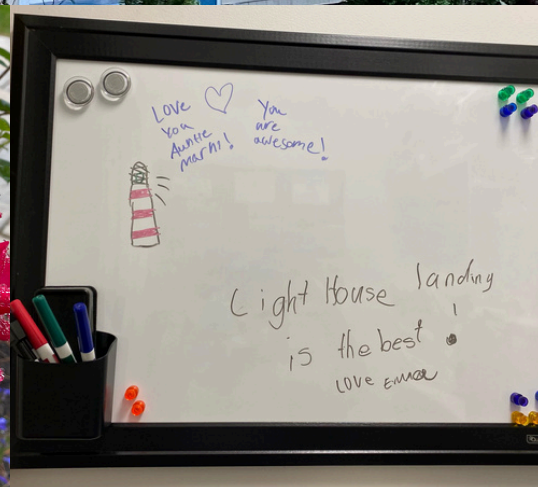 Love
You
Auntie
Marni!
You
are
awesome!
Light House landing
is the best!
LOVE Emma